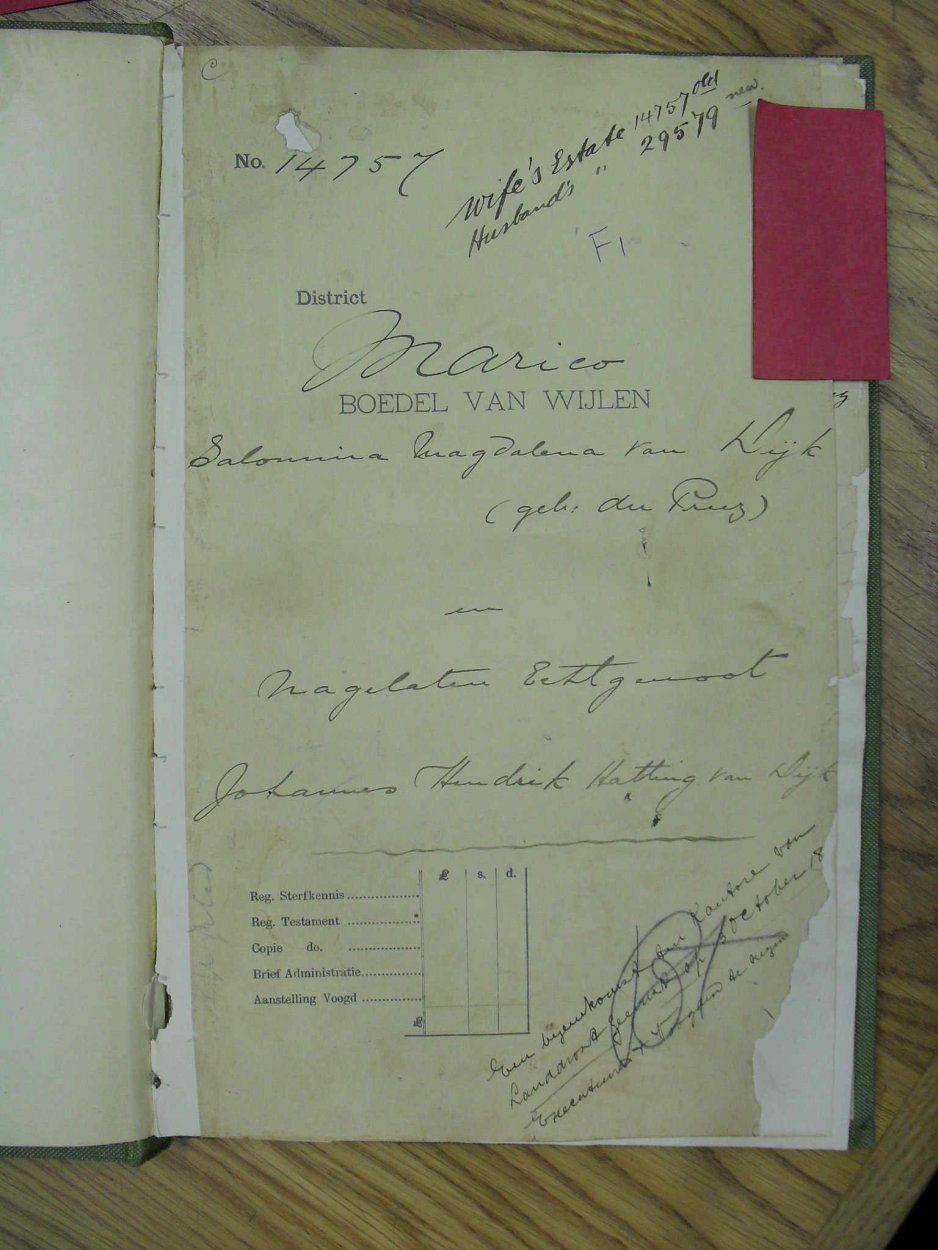 C
No. 14757
Wife's Estate 14757 old
Husband's " 29579 new.
F1
District
Marico
BOEDEL VAN WIJLEN
Salomina Magdalena van Dijk
(geb: du Preez)
en
Nagelaten Echtgenoot
Johannes Hendrik Hatting van Dijk
£ s. d.
Reg. Sterfkennis
Reg. Testament
Copie do.
Brief Administratie
Aanstelling Voogd
£
Een bijeenkomst ten Kantore van
Landdrost Zeerust op 3 October 18
Executeuren & Voogden te